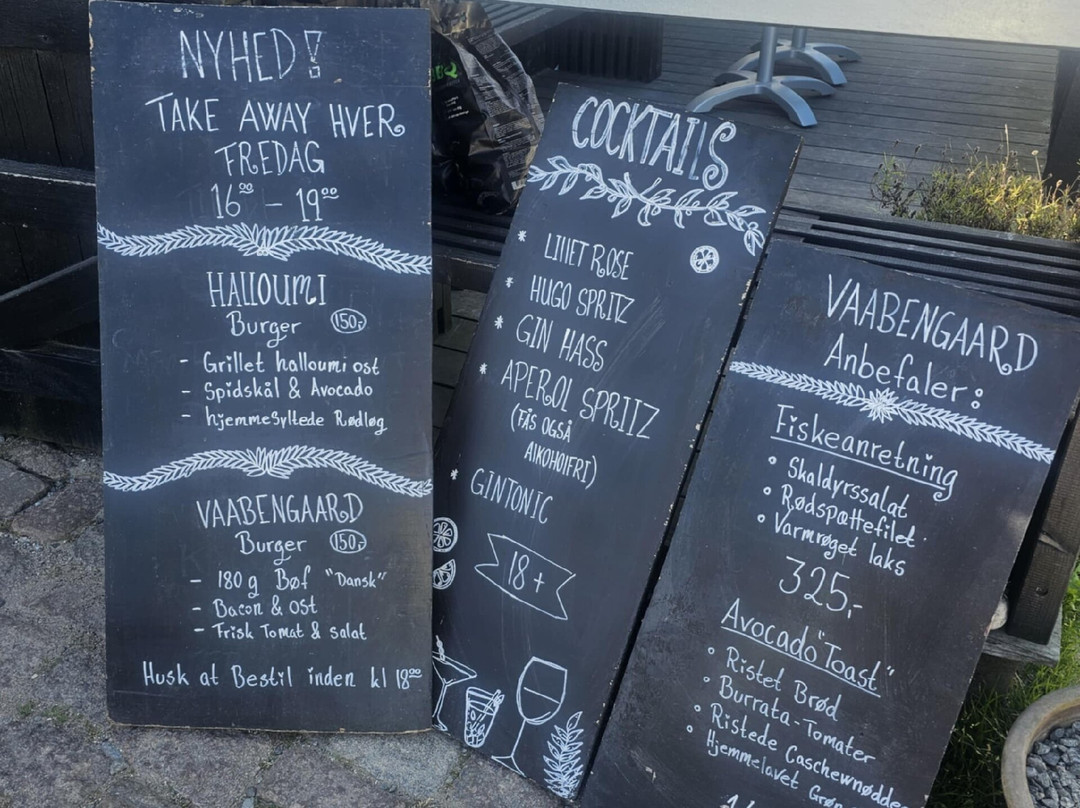 NYHED!
TAKE AWAY HVER
FREDAG
16⁰⁰ – 19⁰⁰
HALLOUMI
Burger 150,-
- Grillet halloumi ost
- Spidskål & Avocado
- hjemmesyltede Rødløg
VAABENGAARD
Burger 150,-
- 180 g Bøf "Dansk"
- Bacon & ost
- Frisk Tomat & salat
Husk at Bestil inden kl 18⁰⁰
COCKTAILS
* LILLET ROSE
* HUGO SPRITZ
* GIN HASS
* APEROL SPRITZ
(FÅS OGSÅ
ALKOHOLFRI)
* GINTONIC
18+
VAABENGAARD
Anbefaler:
Fiskeanretning
• Skaldyrssalat
• Rødspættefilet
• Varmrøget laks
325,-
Avocado "Toast"
• Ristet Brød
• Burrata-Tomater
• Ristede Caschewnødde
• Hjemmelavet